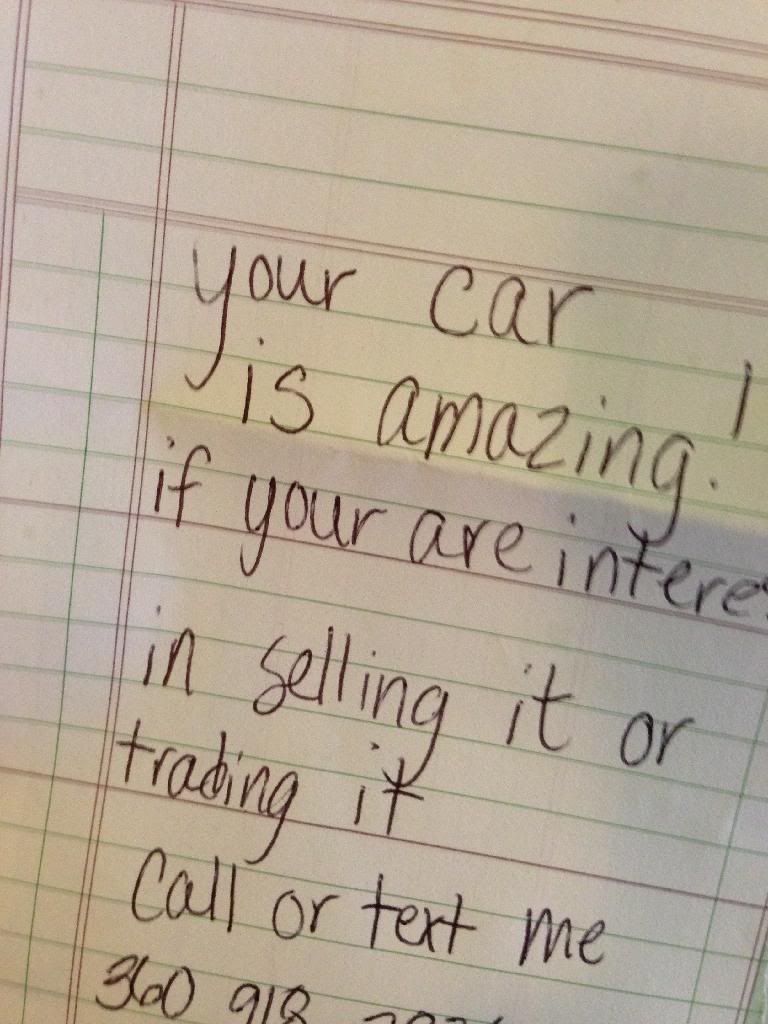 your car
is amazing!
if your are interes
in selling it or
trading it
Call or text me
360 918